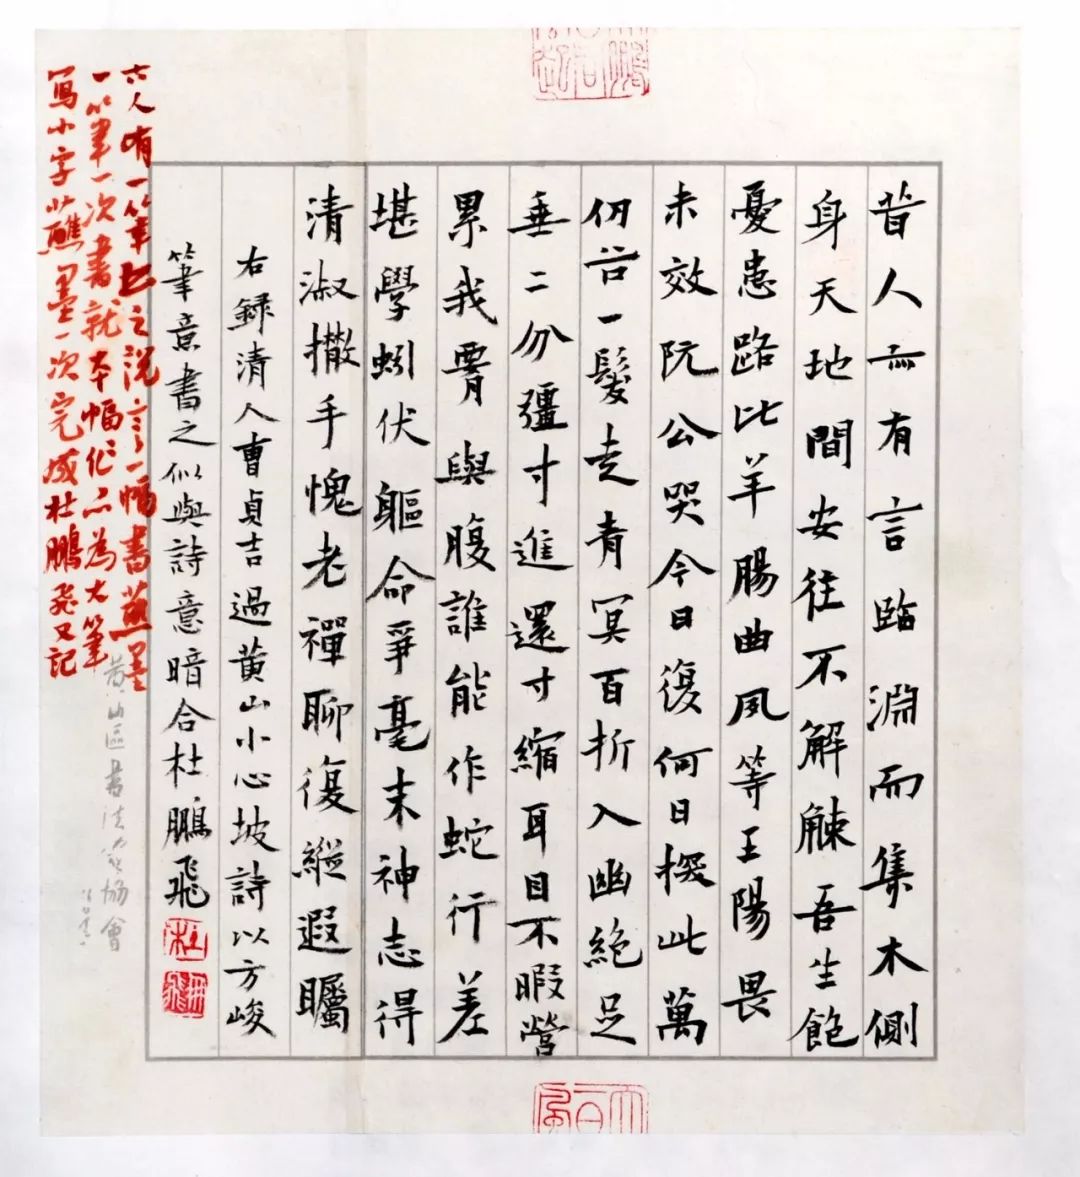 昔人亦有言臨淵而集木側
身天地間安往不解觫吾生飽
憂患路比羊腸曲夙等王陽畏
未效阮公哭今日復何日撥此萬
仞谷一髮走青冥百折入幽絕足
垂二分疆寸進還寸縮耳目不暇營
累我胃與腹誰能作蛇行差
堪學蚓伏軀命爭毫末神志得
清淑撒手愧老禪聊復縱遐矚
右錄清人曹貞吉過黃山小心坡詩以方峻
筆意書之似與詩意暗合杜鵬飛
古人有一筆書之說言一幅書蘸墨
一次筆一次書就本幅作品為大筆
寫小字蘸墨一次完成杜鵬飛又記
黃山區書法家協會